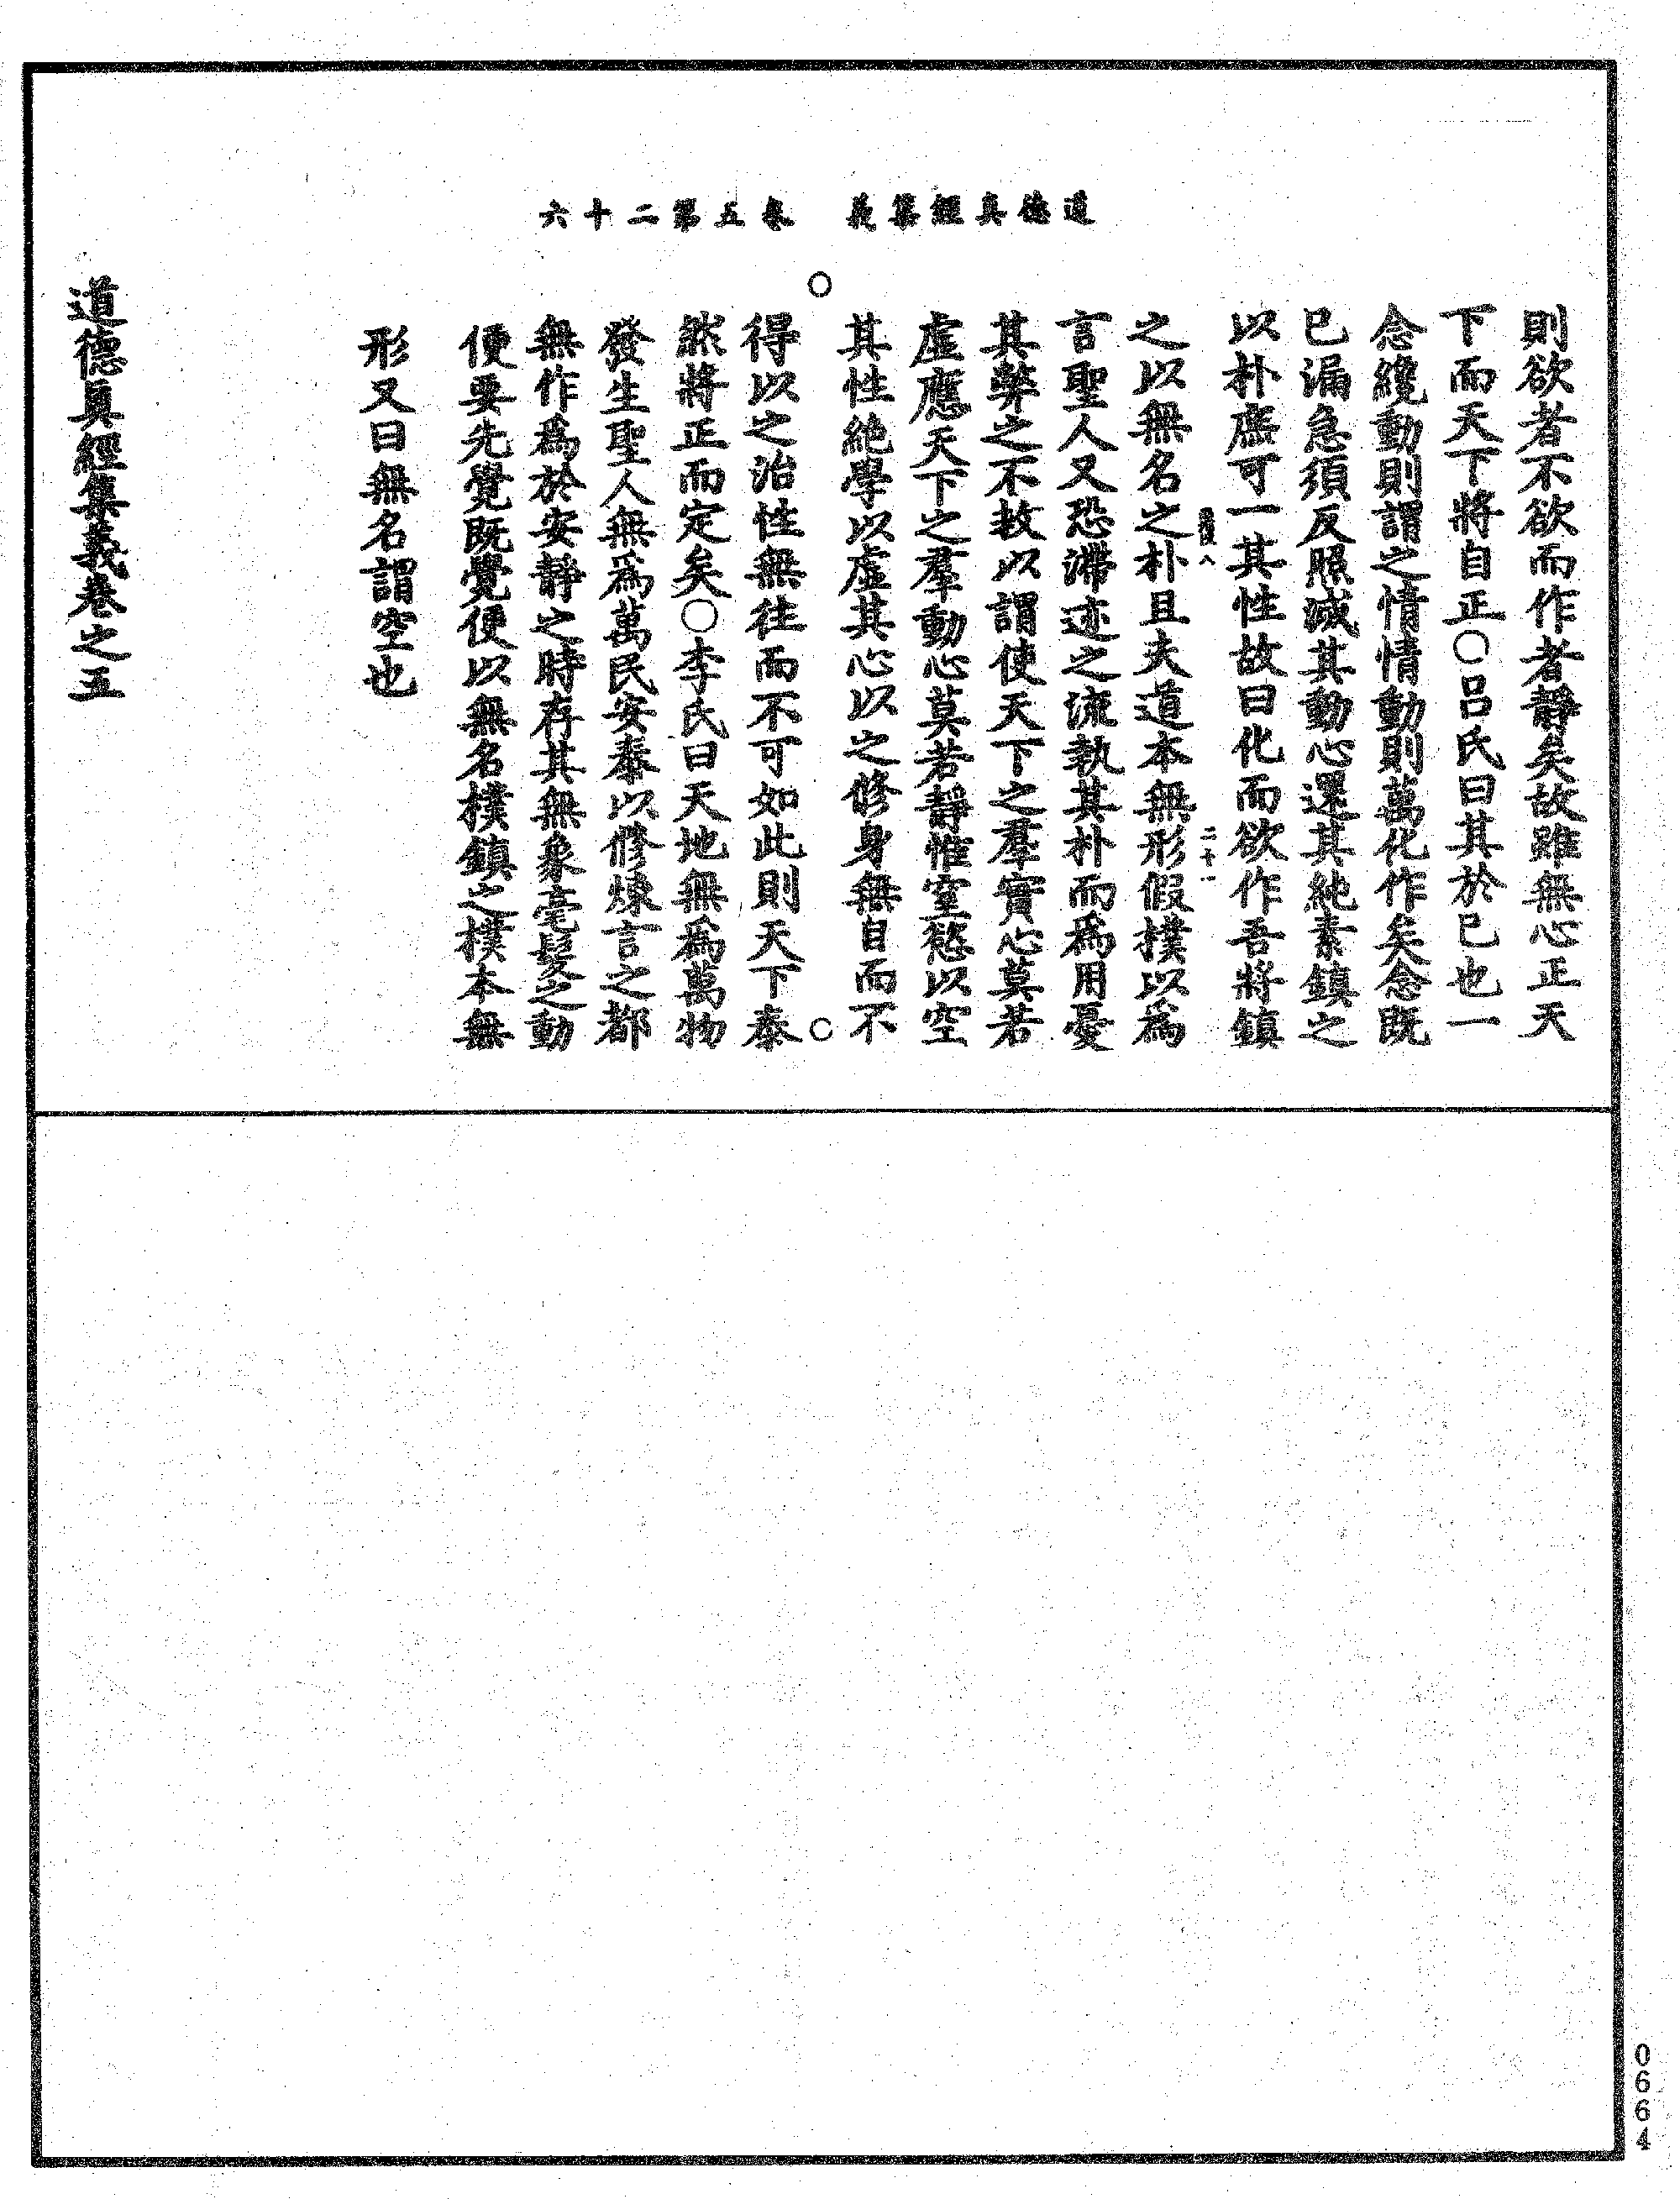 道德真經集義 卷五第二十六
則欲者不欲而作者靜矣故雖無心正天
下而天下將自正〇呂氏曰其於已也一
念纔動則謂之情情動則萬化作矣念既
已漏急須反照滅其動心還其純素鎮之
以朴庶可一其性故曰化而欲作吾將鎮
二十一
之以無名之朴且夫道本無形假樸以為
言聖人又恐滯迹之流執其朴而為用憂
其弊之不救以謂使天下之羣實心莫若
虛應天下之羣動心莫若靜惟窒慾以空
其性絕學以虛其心以之修身無自而不
得以之治性無往而不可如此則天下泰
然將正而定矣〇李氏曰天地無為萬物
發生聖人無為萬民安泰以修煉言之都
無作為於安靜之時存其無象毫髮之動
便要先覺既覺便以無名樸鎮之樸本無
形又曰無名謂空也
道德真經集義卷之五
0664